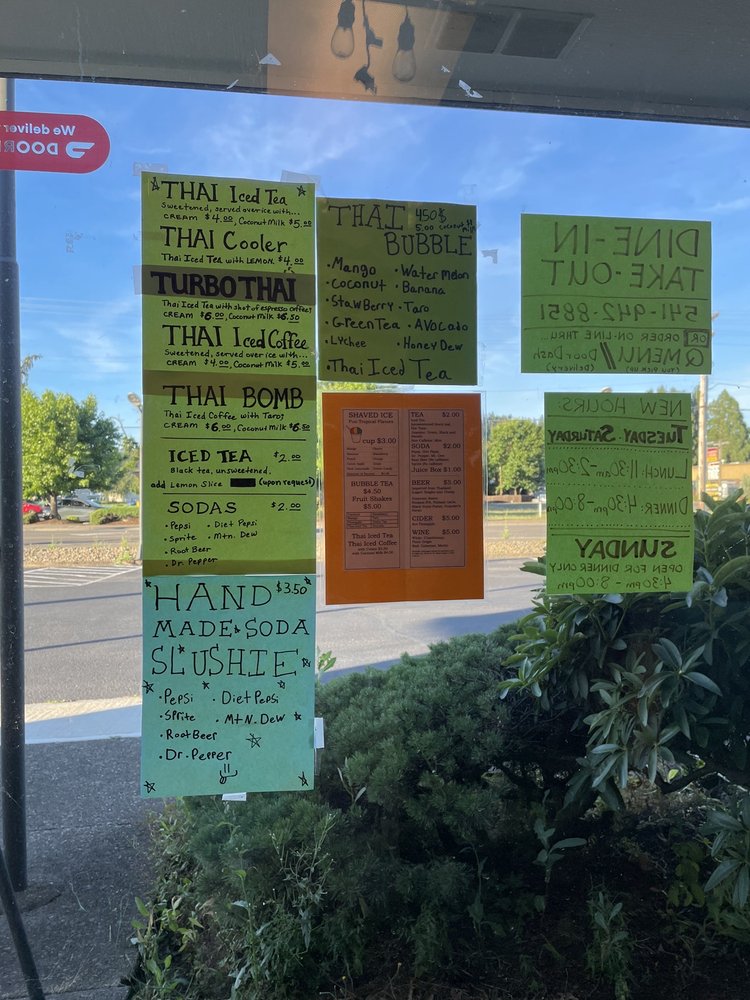 We deliver
DOOR
THAI Iced Tea
Sweetened, served over ice with...
CREAM $4.00, Coconut Milk $5.00
THAI Cooler
Thai Iced Tea with LEMON. $4.00
TURBO THAI
Thai Iced Tea with shot of espresso coffee!
CREAM $6.00, Coconut Milk $6.50
THAI Iced Coffee
Sweetened, served over ice with...
CREAM $4.00, Coconut Milk $5.00
THAI BOMB
Thai Iced Coffee with Taro!
CREAM $6.00, Coconut Milk $6.50
ICED TEA $2.00
Black tea, unsweetened.
add Lemon Slice (upon request)
SODAS $2.00
• Pepsi • Diet Pepsi
• Sprite • Mtn. Dew
• Root Beer
• Dr. Pepper
HAND $3.50
MADE SODA
SLUSHIE
• Pepsi • Diet Pepsi
• Sprite • Mtn. Dew
• Root Beer
• Dr. Pepper
THAI 4.50$
5.00 Coconut Milk
BUBBLE
• Mango • Water melon
• coconut • Banana
• StawBerry • Taro
• Green Tea • AVOcado
• Lychee • Honey Dew
• Thai Iced Tea
SHAVED ICE
cup $3.00
BUBBLE TEA
$4.50
Fruit Shakes
$5.00
Thai Iced Tea
Thai Iced Coffee
TEA $2.00
SODA $2.00
Juice Box $1.00
BEER $5.00
CIDER $5.00
WINE $5.00
DINE-IN
TAKE-OUT
541-942-8851
OR ORDER ON-LINE THRU...
QMENU // Door Dash
(YOU PICK UP) (Delivery)
NEW HOURS:
TUESDAY - SATURDAY
LUNCH: 11:30am-2:30pm
DINNER: 4:30pm-8:00pm
SUNDAY
OPEN FOR DINNER ONLY
4:30pm - 8:00pm